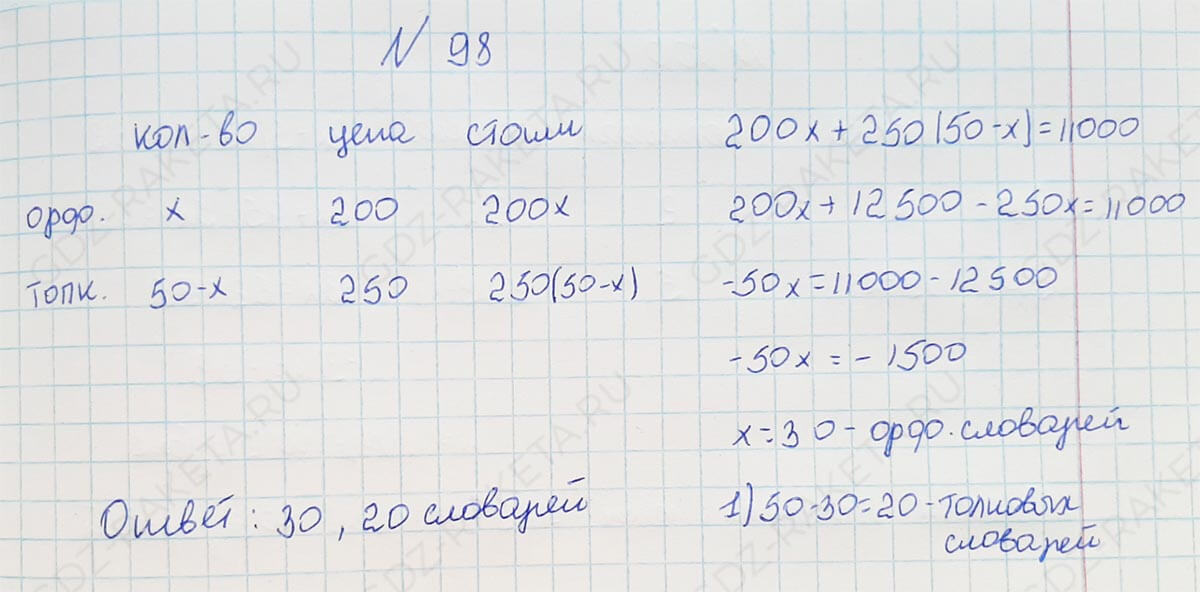 N 98
кол-во цена стоим
орфо. x 200 200x
толк. 50-x 250 250(50-x)
200x + 250(50-x)=11000
200x + 12500 - 250x = 11000
-50x = 11000 - 12500
-50x = - 1500
x = 30 - орфо. словарей
1) 50-30=20 - толковых
словарей
Ответ: 30, 20 словарей
GDZ-RAKETA.RU